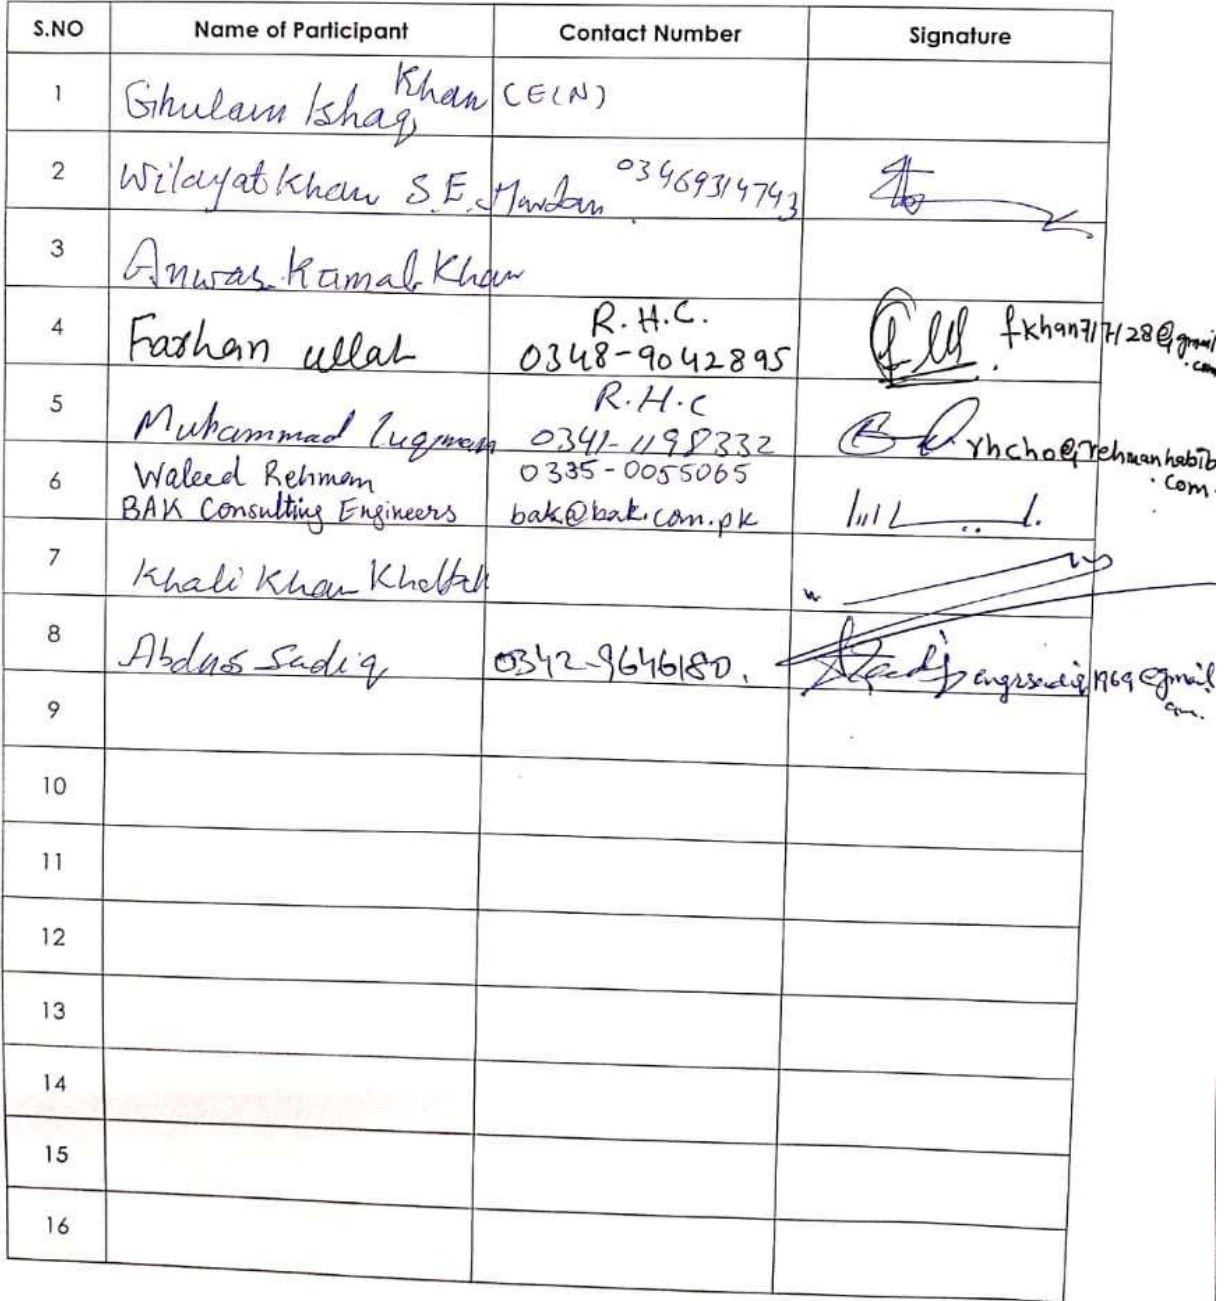 S.NO Name of Participant Contact Number Signature
1 Ghulam Ishaq Khan CE(N)
2 Wilayat Khan S.E. Mardan 03469314743
3 Anwar Kamal Khan
4 Farhan ullah R.H.C.
0348-9042895 fkhan717128@gmail
.com
5 Muhammad Luqman R.H.C
0341-1198332 rhcho@rehmanhabib
.com.
6 Waleed Rehman 0335-0055065
BAK Consulting Engineers bak@bak.com.pk
7 Khali Khan Khattak
8 Abdus Sadiq 0342-9646180. engrsadiq1969@gmail
com.
9
10
11
12
13
14
15
16